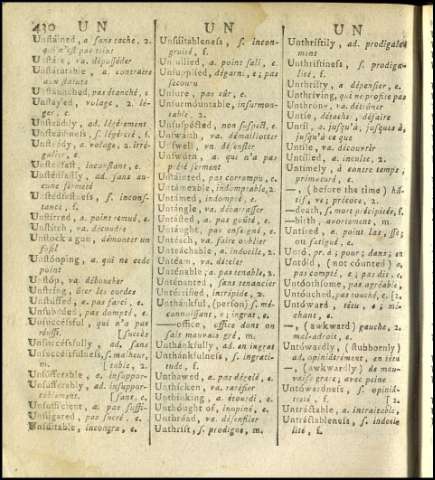 430 U N
U N
U N
Unstáined, a sans tache. 2.
qui n'est pas teint
Unstáte, va. déposséder
Unstátutable, a contraire
aux statuts
Unstáunched, pas étanché, 2
Unstáyed, volage, 2. lé-
ger, e.
Unstéadily, ad. légérement
Unstéadiness, s. légéreté, f.
Unstéady, a. volage, 2. irré-
gulier, e.
Unstédfast, inconstant, e.
Unstédfastly, ad. sans au-
cune fermeté
Unstédfastness, s. incons-
tance, f.
Unstírred, a. point remué, e.
Unstítch, va. découdre
Unstóck a gun, démonter un
fusil
Unstóoping, a. qui ne cede
point
Unstóp, va. déboucher
Unstríng, ôter les cordes
Unstúffed, a. pas farci, e.
Unsubdúed, pas dompté, e.
Unsuccéssful, qui n'a pas
réussi. [succès
Unsuccéssfully, ad. sans
Unsuccéssfulness, s. malheur,
m. [table, 2.
Unsúfferable, a. insuppor-
Unsúfferably, ad. insuppor-
tablement. [sant, e.
Unsufficient, a. pas suffi-
Unsúgared, pas sucré, e.
Unsúitable, incongru, e.
Unsúitableness, s. incon-
gruité, f.
Unsúllied, a. point sali, e.
Unsupplied, dégarni, e; pas
secouru
Unsúre, pas sûr, e.
Unsurmóuntable, insurmon-
table, 2.
Unsuspécted, non suspect, e.
Unswáth, va. démaillotter
Unswéll, va. désenfler
Unswórn, a. qui n'a pas
prêté serment
Untáinted, pas corrompu, e.
Untámeable, indomptable, 2.
Untámed, indompté, e.
Untángle, va. débarrasser
Untásted, a. pas goûté, e.
Untáught, pas enseigné, e.
Untéach, va. faire oublier
Untéachable, a. indocile, 2.
Untéam, va. dételer
Unténable, a. pas tenable, 2.
Unténanted, sans tenancier
Untérrified, intrépide, 2.
Unthánkful, (person) s. mé-
connoissant, e; ingrat, e.
—office, office dont on
sait mauvais gré, m.
Unthánkfully, ad. en ingrat
Unthánkfulness, s. ingrati-
tude, f.
Unthawed, a. pas dégelé, e.
Unthícken, va. raréfier
Unthínking, a. étourdi, e.
Unthóught of, inopiné, e.
Unthréad, va. désenfiler
Unthríft, s. prodigue, m.
Unthríftily, ad. prodigale-
ment
Unthríftiness, s. prodiga-
lité, f.
Unthrífty, a. dépensier, e.
Unthríving, qui ne profite pas
Unthróne, va. détrôner
Untíe, détaché, défaire
Untíl, a. jusqu'à, jusques à,
jusqu'à ce que
Untíle, va. découvrir
Untílled, a. inculte, 2.
Untímely, à contre temps,
prématuré, e.
—, (before the time) hâ-
tif, ve; précoce, 2.
—death, s. mort précipitée, f.
—birth, avortement, m.
Untíred, a. point las, sse;
ou fatigué, e.
Untó, pr. à; pour; dans; en
Untóld, (not counted) a.
pas compté, e; pas dit, e.
Untóothsome, pas agréable,
Untóuched, pas touché, e. [2.
Untóward, têtu, e; mé-
chant, e.
—, (awkward) gauche, 2.
mal-adroit, e.
Untówardly, (stubbornly)
ad. opiniâtrément, en têtu
—, (awkwardly) de mau-
vaise grace; avec peine
Untówardness, s. opiniâ-
treté, f. [2.
Untráctable, a. intraitable,
Untráctableness, s. indoci-
lité, f.